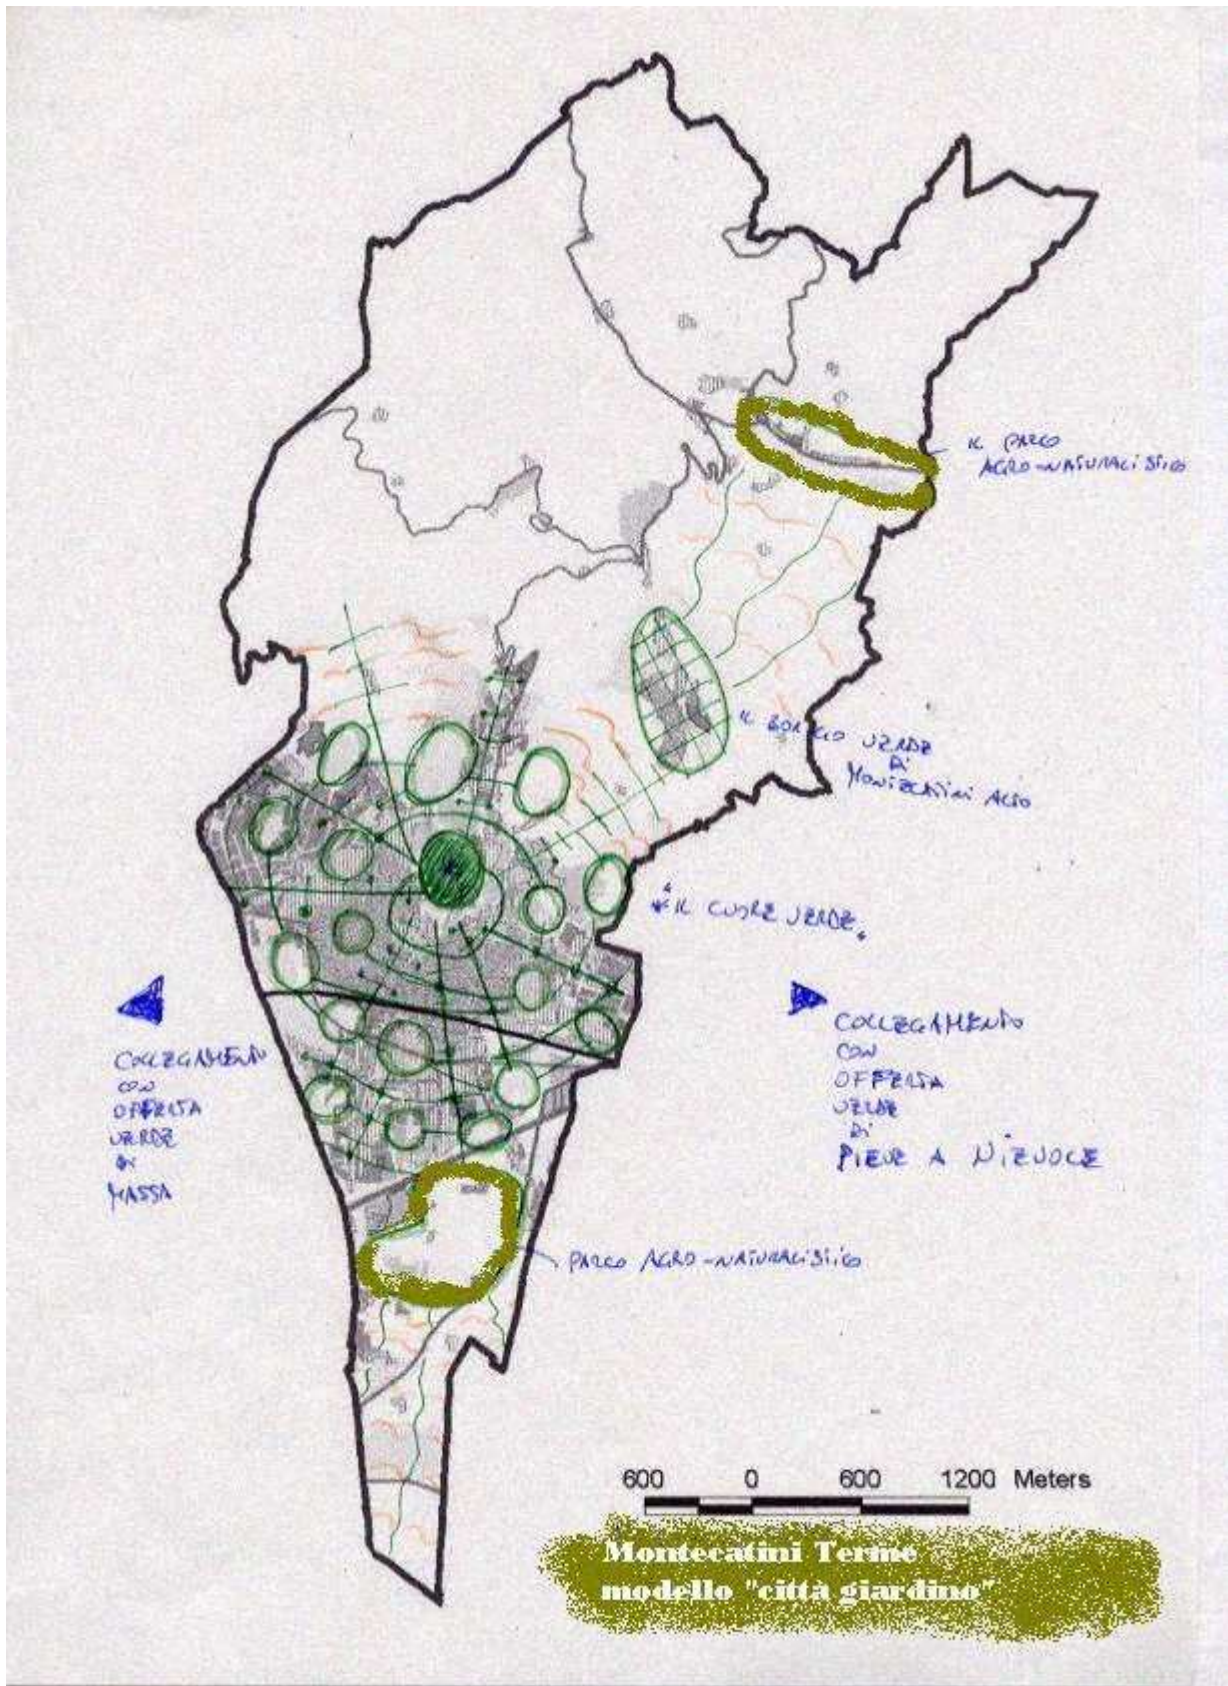 IL PARCO
AGRO-NATURALISTICO
IL BORGO VERDE
DI
MONTECATINI ALTO
"IL CUORE VERDE"
COLLEGAMENTO
CON
OFFERTA
VERDE
DI
MASSA
COLLEGAMENTO
CON
OFFERTA
VERDE
DI
PIEVE A NIEVOLE
PARCO AGRO-NATURALISTICO
600 0 600 1200 Meters
Montecatini Terme
modello "città giardino"